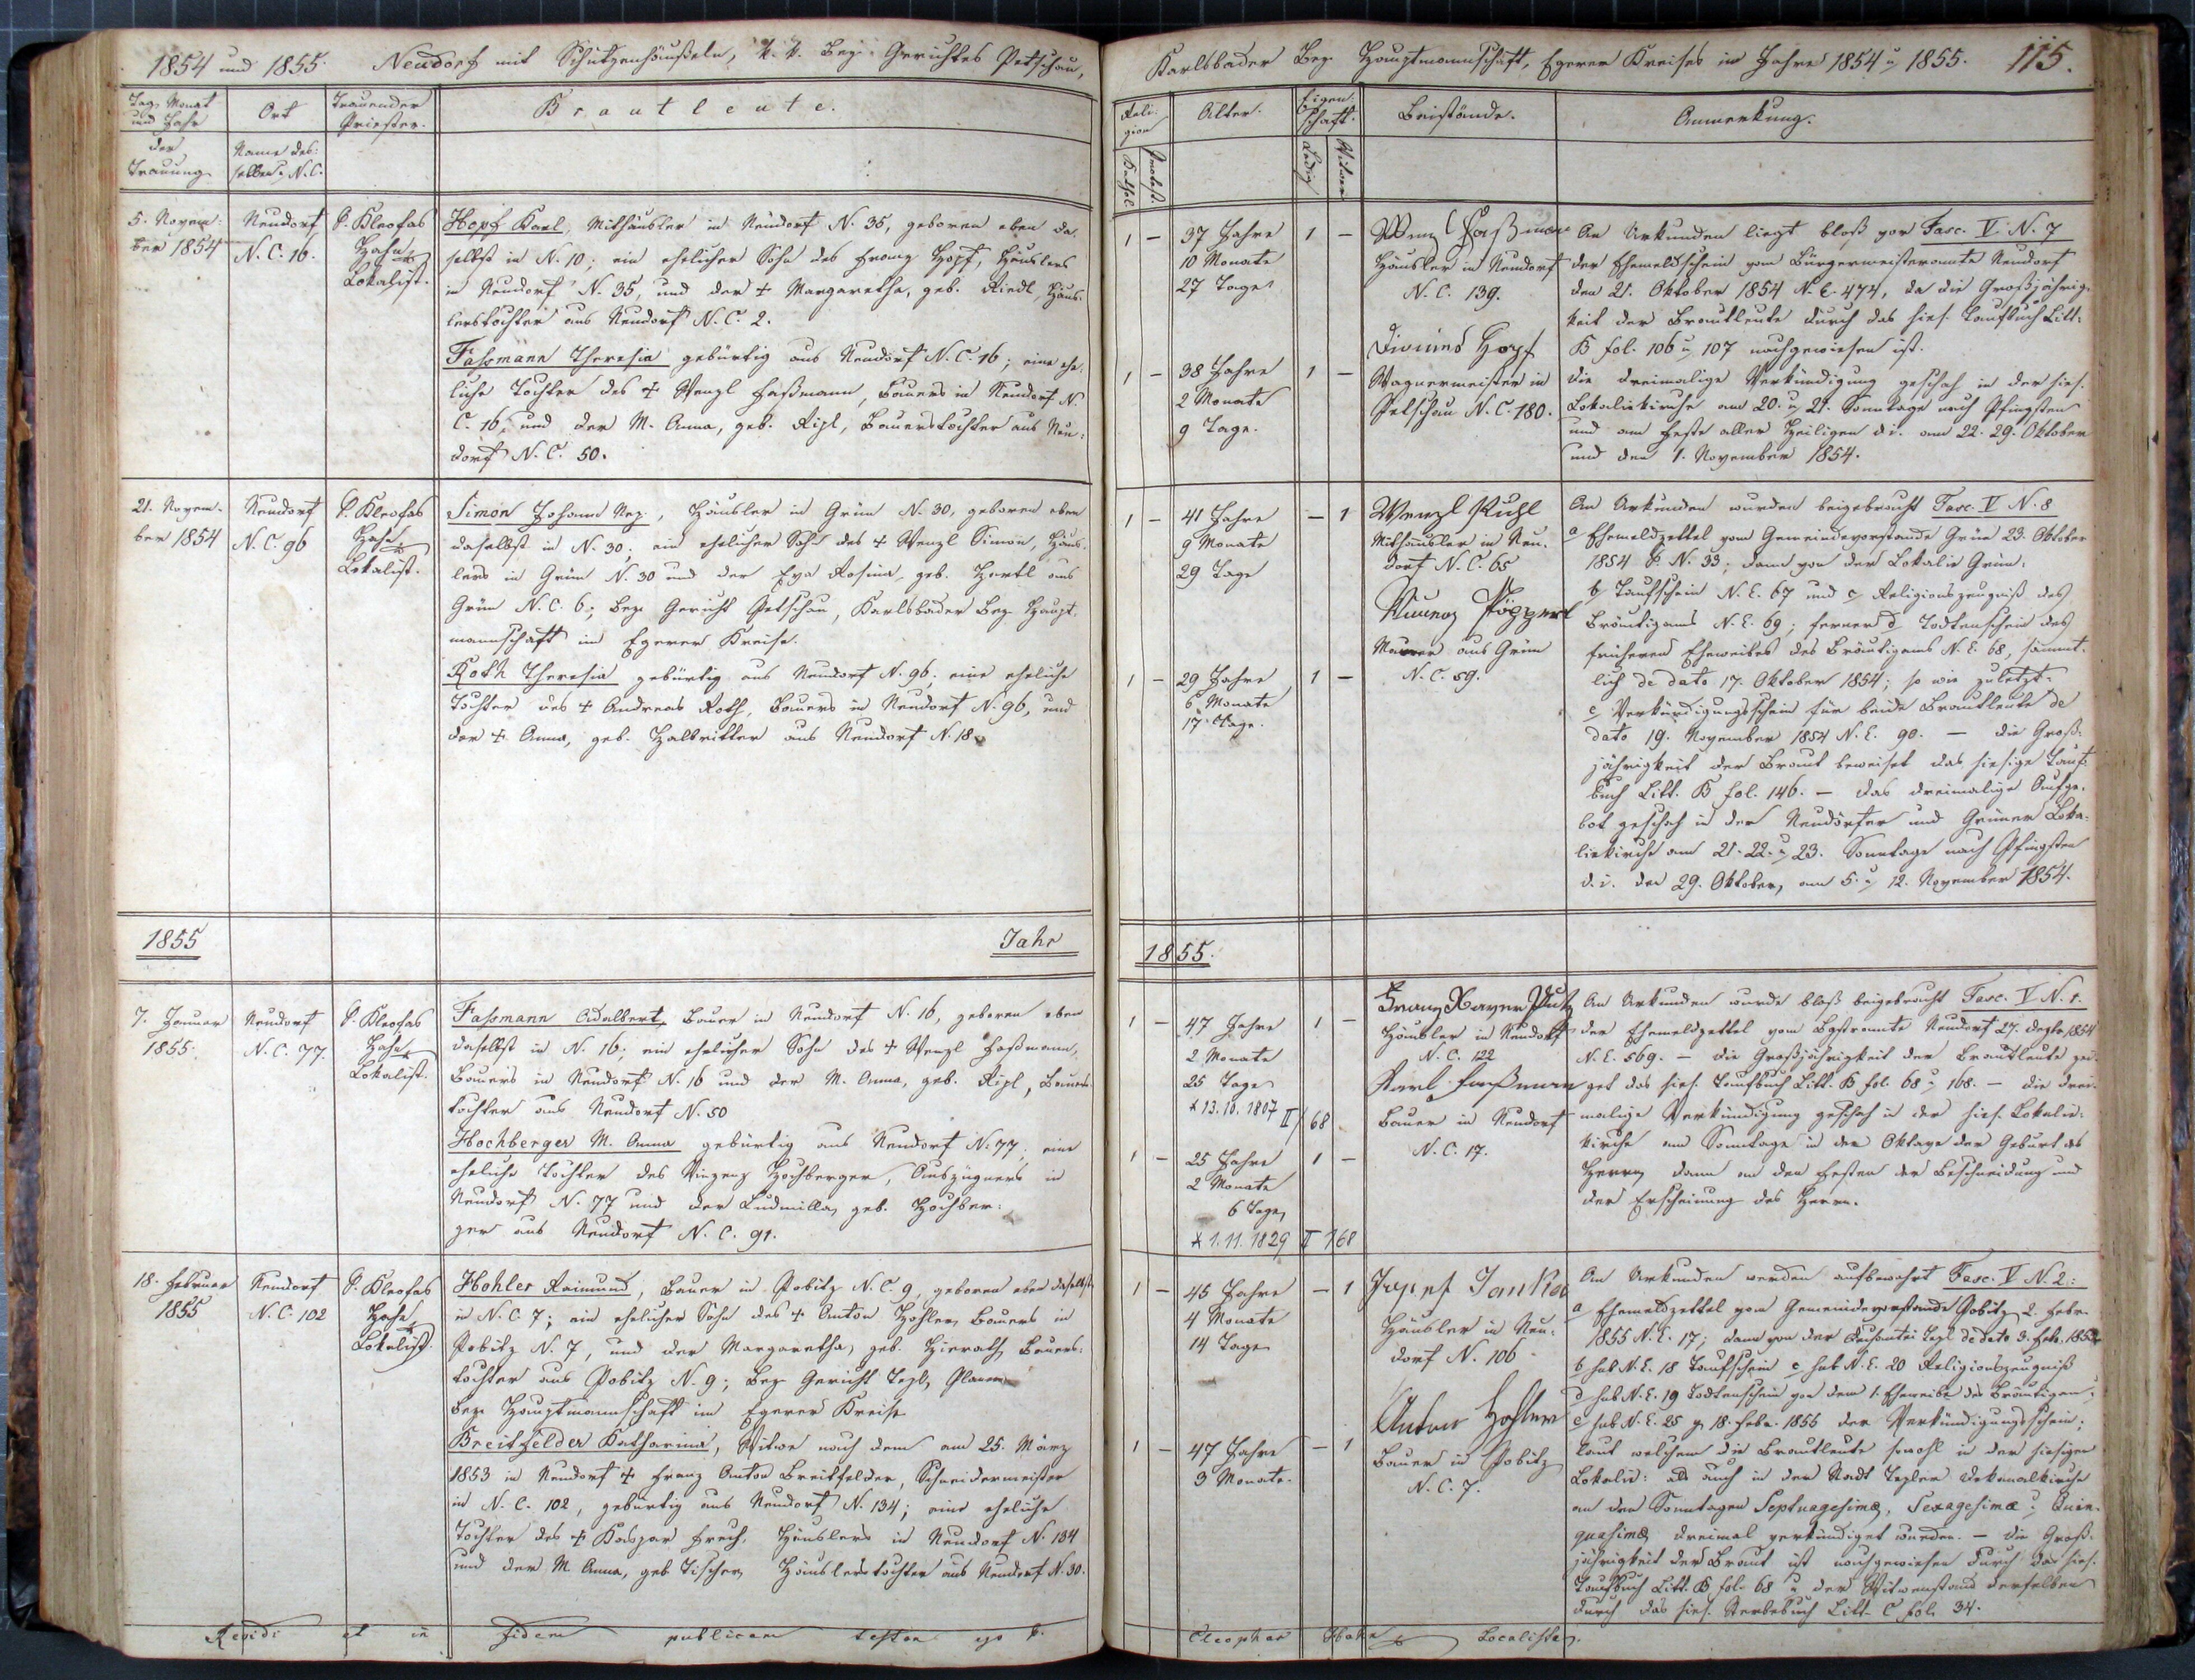 1854 und 1855. Neudorf mit Schützenhäußeln, k. k. Bez. Gerichtes Petschau,
Tag, Monat und Jahr der Trauung
Ort
Name des-
selben, N. C.
Trauender
Priester.
Brautleute.
5. Novem-
ber 1854
Neudorf
N. C. 16.
P. Kleofas
Hahn
Lokalist.
Hopf Karl, Mithäusler in Neudorf N. 35, geboren eben da-
selbst in N. 10; ein ehelicher Sohn des Franz Hopf, Häuslers
in Neudorf N. 35, und der + Margaretha, geb. Riedl, Häus-
lerstochter aus Neudorf N. C. 2.
Fassmann Theresia gebürtig aus Neudorf N. C. 16; eine ehe-
liche Tochter des + Wenzl Faßmann, Bauers in Neudorf N.
C. 16, und der M. Anna, geb. Ripl, Bauerstochter aus Neu-
dorf N. C. 50.
21. Novem-
ber 1854
Neudorf
N. C. 96
P. Kleofas
Hahn
Lokalist.
Simon Johann Nep., Häusler in Grün N. 30, geboren eben
daselbst in N. 30; ein ehelicher Sohn des + Wenzl Simon, Häus-
lers in Grün N. 30 und der Eva Rosina, geb. Hartl aus
Grün N. C. 6; Bez. Gericht Petschau, Karlsbader Bez. Haupt-
mannschaft im Egerer Kreise.
Roth Theresia gebürtig aus Neudorf N. 96; eine eheliche
Tochter des + Andreas Roth, Bauers in Neudorf N. 96, und
der + Anna, geb. Halbritter aus Neudorf N. 18.
1855 Jahr
7. Januar
1855.
Neudorf
N. C. 77.
P. Kleofas
Hahn
Lokalist.
Fassmann Adalbert, Bauer in Neudorf N. 16, geboren eben
daselbst in N. 16; ein ehelicher Sohn des + Wenzl Faßmann,
Bauers in Neudorf N. 16 und der M. Anna, geb. Ripl, Bauers-
tochter aus Neudorf N. 50
Hochberger M. Anna gebürtig aus Neudorf N. 77; eine
eheliche Tochter des Vinzenz Hochberger, Auszüglers in
Neudorf N. 77 und der Ludmilla, geb. Hochber-
ger aus Neudorf N. C. 91.
18. Februar
1855
Neudorf
N. C. 102
P. Kleofas
Hahn
Lokalist.
Hohler Raimund, Bauer in Pobitz N. C. 9, geboren eben daselbst
in N. C. 7; ein ehelicher Sohn des + Anton Hohler, Bauers in
Pobitz N. 7, und der Margaretha, geb. Hierath, Bauers-
tochter aus Pobitz N. 9; Bez. Gericht Tepl, Planer
Bez. Hauptmannschaft im Egerer Kreise
Breitfelder Katharina, Witwe nach dem am 25. März
1853 in Neudorf + Franz Anton Breitfelder, Schneidermeister
in N. C. 102, gebürtig aus Neudorf N. 134; eine eheliche
Tochter des + Kaspar Frech, Häuslers in Neudorf N. 134
und der M. Anna, geb. Tischer, Häuslerstochter aus Neudorf N. 30.
Revidi et in fidem publicam testor ego P.
Karlsbader Bez. Hauptmannschaft, Egerer Kreises im Jahre 1854 u. 1855. 115.
Reli-
gion
Kathol.
Protest.
Alter.
Eigen-
schaft.
Ledig
Witwer
Beistände.
Anmerkung.
1 - 37 Jahre 1 -
10 Monate
27 Tage
1 - 38 Jahre 1 -
2 Monate
9 Tage.
Wenzl Faßmann
Häusler in Neudorf
N. C. 139.
Hopf
Wagnermeister in
Petschau N. C. 180.
An Urkunden liegt bloß vor Fasc. V. N. 7
der Ehemeldschein vom Bürgermeisteramte Neudorf
den 21. Oktober 1854 N. E. 474, da die Großjährig-
keit der Brautleute durch das hies. Taufbuch Litt.
B fol. 106 u. 107 nachgewiesen ist.
Die dreimalige Verkündigung geschah in der hies.
Lokaliekirche am 20. u. 21. Sonntage nach Pfingsten
und am Feste aller Heiligen d. i. am 22. 29. Oktober
und den 1. November 1854.
1 - 41 Jahre - 1
9 Monate
29 Tage
1 - 29 Jahre 1 -
6 Monate
17 Tage.
Wenzl Kuhl
Mithäusler in Neu-
dorf N. C. 65
Pöppert
Maurer aus Grün
N. C. 59.
An Urkunden wurden beigebracht Fasc. V N. 8
a Ehemeldzettel vom Gemeindevorstande Grün 23. Oktober
1854 E. N. 33; dann von der Lokalie Grün:
b Taufschein N. E. 67 und c Religionszeugniß des
Bräutigams N. E. 69; ferner d Todtenschein des
früheren Eheweibes des Bräutigams N. E. 68, sämmt-
lich de dato 17. Oktober 1854; so wie zuletzt:
e Verkündigungsschein für beide Brautleute de
dato 19. November 1854 N. E. 90. — Die Groß-
jährigkeit der Braut beweiset das hiesige Tauf-
buch Litt. B fol. 146. — Das dreimalige Aufge-
bot geschah in der Neudorfer und Grüner Loka-
liekirche am 21. 22. u. 23. Sonntage nach Pfingsten
d. i. den 29. Oktober, am 5. u. 12. November 1854.
1855.
1 - 47 Jahre 1 -
2 Monate
25 Tage
* 13.10.1807 II/68
1 - 25 Jahre 1 -
2 Monate
6 Tage
* 1.11.1829 II 168
Franz Xaver
Häusler in Neudorf
N. C. 122
Karl Faßmann
Bauer in Neudorf
N. C. 17.
An Urkunden wurde bloß beigebracht Fasc. V N. 1.
der Ehemeldzettel vom Neudorf 27. Dezbr 1854
N. E. 569. — Die Großjährigkeit der Brautleute zei-
get das hies. Taufbuch Litt. B fol. 68 u. 168. — Die drei-
malige Verkündigung geschah in der hies. Lokalie-
kirche am Sonntage in der Oktave der Geburt des
Herrn, dann an den Festen der Beschneidung und
der Erscheinung des Herrn.
1 - 45 Jahre - 1
4 Monate
14 Tage
1 - 47 Jahre - 1
3 Monate.
Josef Janka
Häusler in Neu-
dorf N. 106
Anton Hohler
Bauer in Pobitz
N. C. 7.
An Urkunden werden aufbewahrt Fasc. V N. 2:
a Ehemeldzettel vom Gemeindevorstande Pobitz 2. Febr.
1855 N. E. 17; dann von der Dechantei Tepl de dato 3. Feb. 1855
b sub N. E. 18 Taufschein c sub N. E. 20 Religionszeugniß
d sub N. E. 19 Todtenschein von dem 1. Eheweibe des Bräutigams;
e sub N. E. 25 18. Febr. 1855 der Verkündigungsschein;
laut welchem die Brautleute sowohl in der hiesigen
Lokalie: als auch in der Stadt Tepler Dekanalkirche
an den Sonntagen Septuagesimæ, Sexagesimæ u. Quin-
quasimæ dreimal verkündiget wurden. — Die Groß-
jährigkeit der Braut ist nachgewiesen durch das hies.
Taufbuch Litt. B fol. 68 u. der Witwenstand derselben
durch das hies. Sterbebuch Litt. C fol. 34.
Cleophas Hahn Localista.